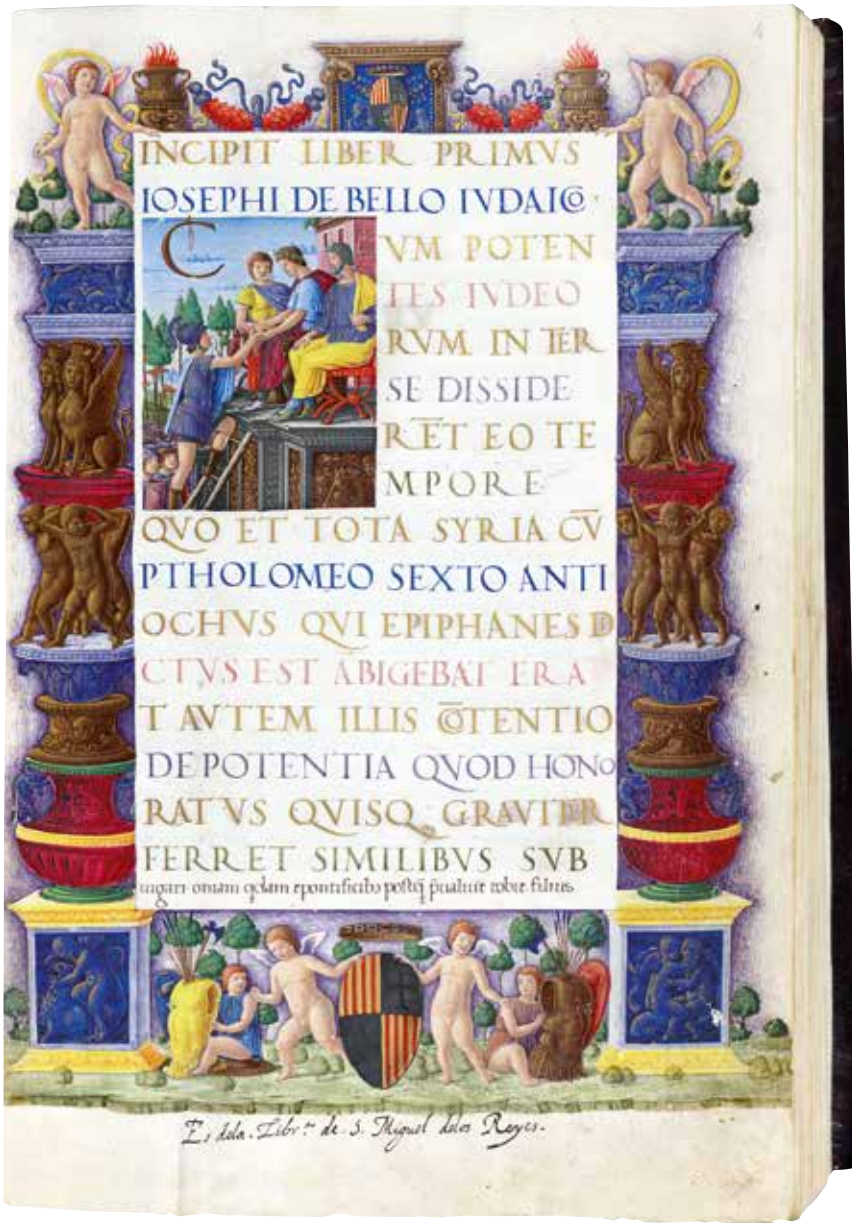 INCIPIT LIBER PRIMVS
IOSEPHI DE BELLO IVDAICO
C
VM POTEN
TES IVDEO
RVM IN TER
SE DISSIDE
RĒT EO TE
MPORE
QVO ET TOTA SYRIA CV̄
PTHOLOMEO SEXTO ANTI
OCHVS QVI EPIPHANES D
CTVS EST ABIGEBAT ERA
T AVTEM ILLIS CŌTENTIO
DE POTENTIA QVOD HONO
RATVS QVISQ GRAVITER
FERRET SIMILIBVS SVB
filius
Es dela Libr.ª de S. Miguel delos Reyes.